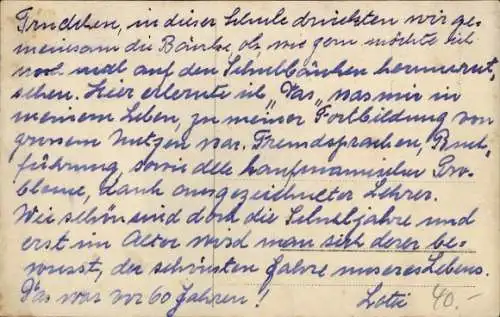 Trudchen, in dieser Schule drückten wir ge-
meinsam die Bänke, oh, wie gern möchte ich
noch mal auf den Schulbänken herumrut-
schen. Hier erlernte ich "Das", was mir in
meinem Leben, zu meiner Fortbildung von
grossem Nutzen war. Fremdsprachen, Buch-
führung, sowie alle kaufmännischen Pro-
bleme, dank ausgezeichneter Lehrer.
Wie schön sind doch die Schuljahre und
erst im Alter wird man sich derer be-
wusst, der schönsten Jahre unseres Lebens.
Das war vor 60 Jahren!
40.-